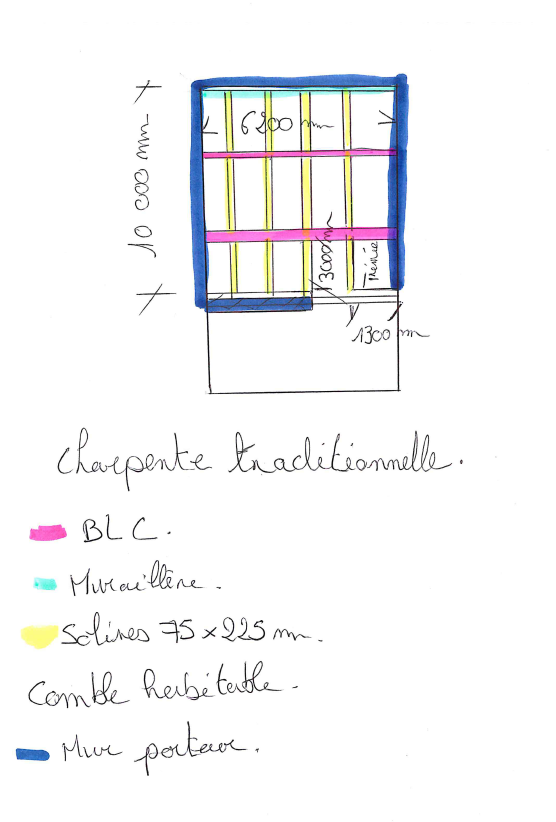 6200 mm
10 000 mm
13000 mm
Trémie
1300 mm
Charpente traditionnelle.
BLC.
Muraillère.
Solives 75 x 225 mm.
Comble habitable.
Mur porteur.